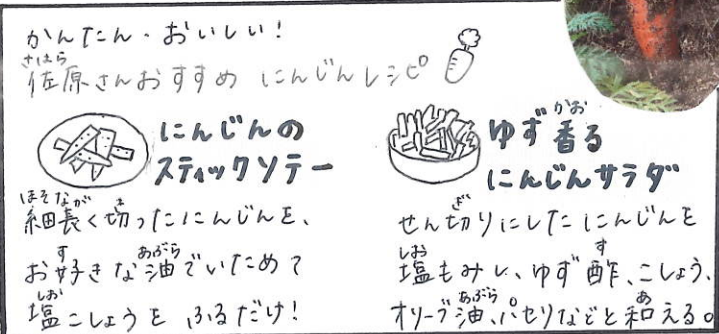 かんたん・おいしい！
佐原さんおすすめ にんじんレシピ
にんじんの
スティックソテー
細長く切ったにんじんを、
お好きな油でいためて
塩こしょうを ふるだけ！
ゆず香る
にんじんサラダ
せん切りにしたにんじんを
塩もみし、ゆず酢、こしょう、
オリーブ油、パセリなどと和える。